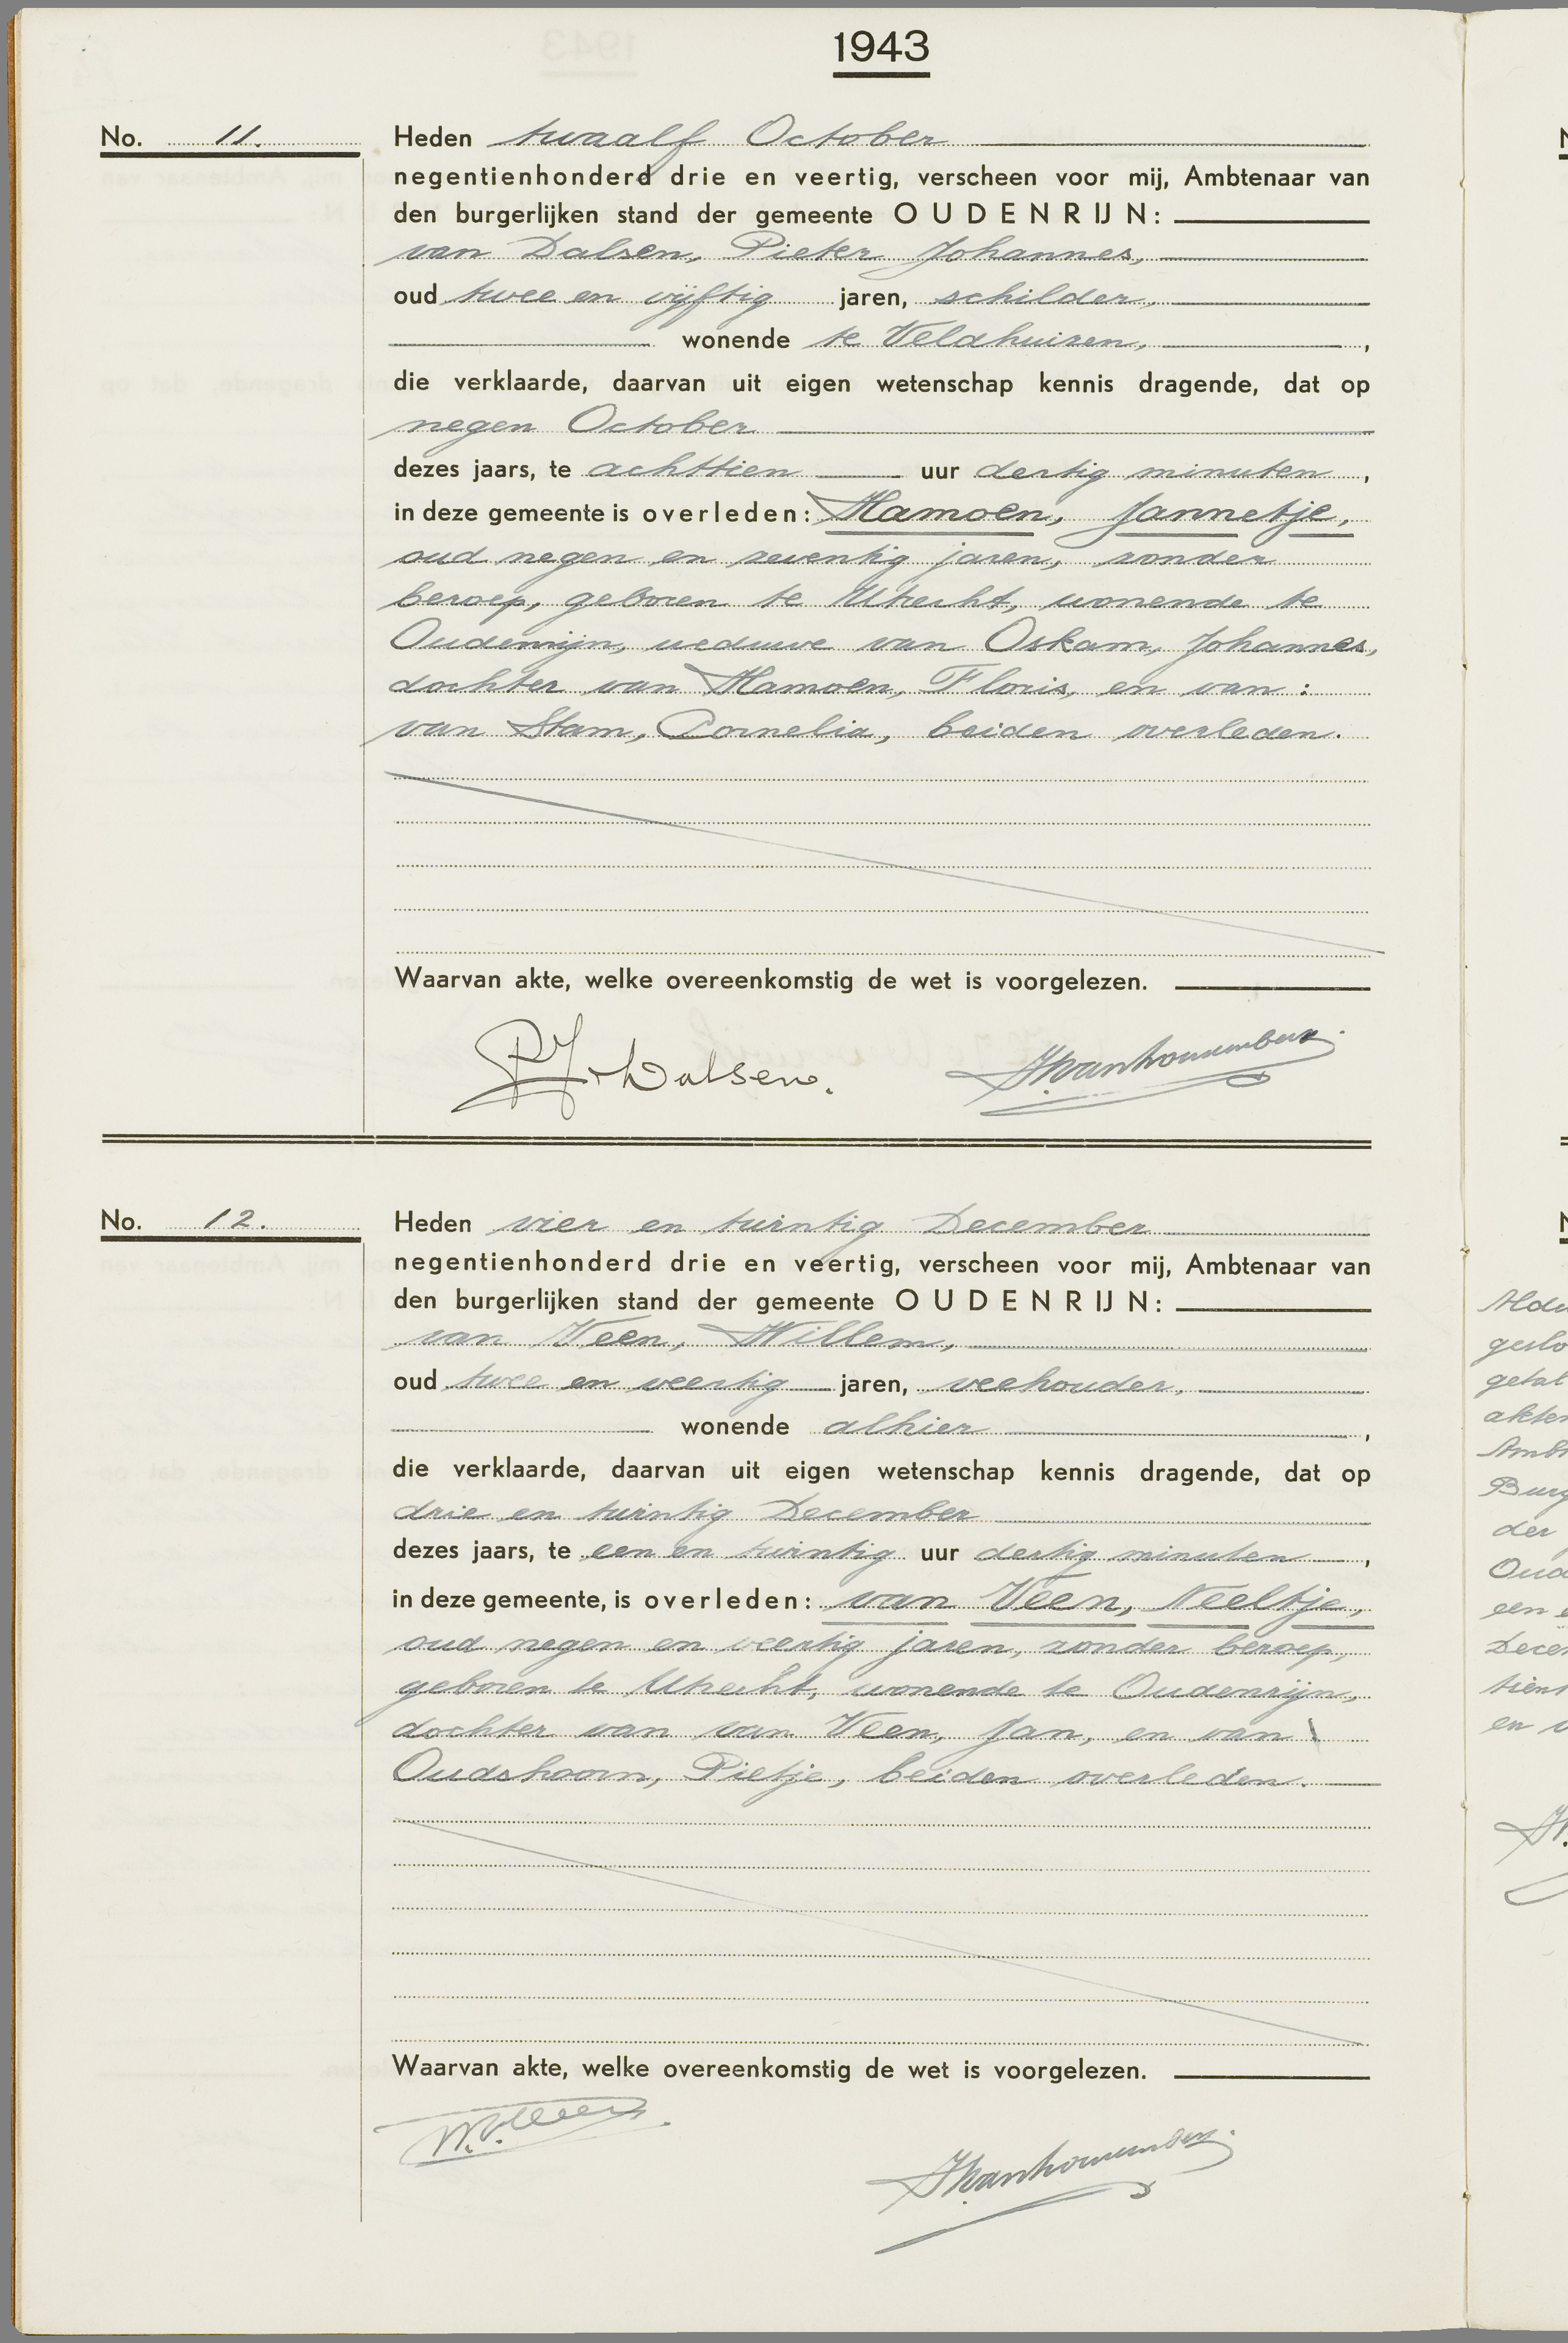 1943
No. 11.
Heden twaalf October
negentienhonderd drie en veertig, verscheen voor mij, Ambtenaar van
den burgerlijken stand der gemeente OUDENRIJN:
van Dalsen, Pieter Johannes,
oud twee en vijftig jaren, schilder,
wonende te Veldhuizen, ,
die verklaarde, daarvan uit eigen wetenschap kennis dragende, dat op
negen October
dezes jaars, te achttien uur dertig minuten ,
in deze gemeente is overleden: Hamoen, Jannetje,
oud negen en zeventig jaren, zonder
beroep, geboren te Utrecht, wonende te
Oudenrijn, weduwe van Oskam, Johannes,
dochter van Hamoen, Floris, en van :
van Stam, Cornelia, beiden overleden.
Waarvan akte, welke overeenkomstig de wet is voorgelezen.
PJ v Dalsen.
No. 12.
Heden vier en twintig December
negentienhonderd drie en veertig, verscheen voor mij, Ambtenaar van
den burgerlijken stand der gemeente OUDENRIJN:
van Veen, Willem,
oud twee en veertig jaren, veehouder,
wonende alhier ,
die verklaarde, daarvan uit eigen wetenschap kennis dragende, dat op
drie en twintig December
dezes jaars, te een en twintig uur dertig minuten ,
in deze gemeente, is overleden: van Veen, Neeltje,
oud negen en veertig jaren, zonder beroep,
geboren te Utrecht, wonende te Oudenrijn,
dochter van van Veen, Jan, en van
Oudshoorn, Pietje, beiden overleden.
Waarvan akte, welke overeenkomstig de wet is voorgelezen.
W.v.Veen.